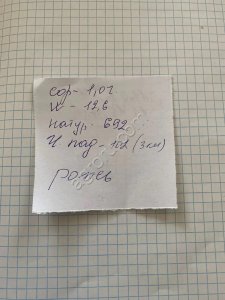 сор- 1,01
W - 12,6
натур. 692
Ч. пад - 112 (3 кл)
рожь